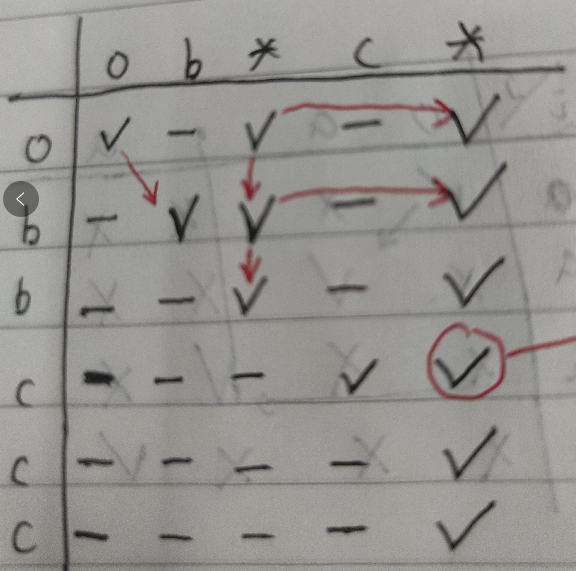 o b * c *
o ✓ - ✓ - ✓
b - ✓ ✓ - ✓
b - - ✓ - ✓
c - - - ✓ ✓
c - - - - ✓
c - - - - ✓